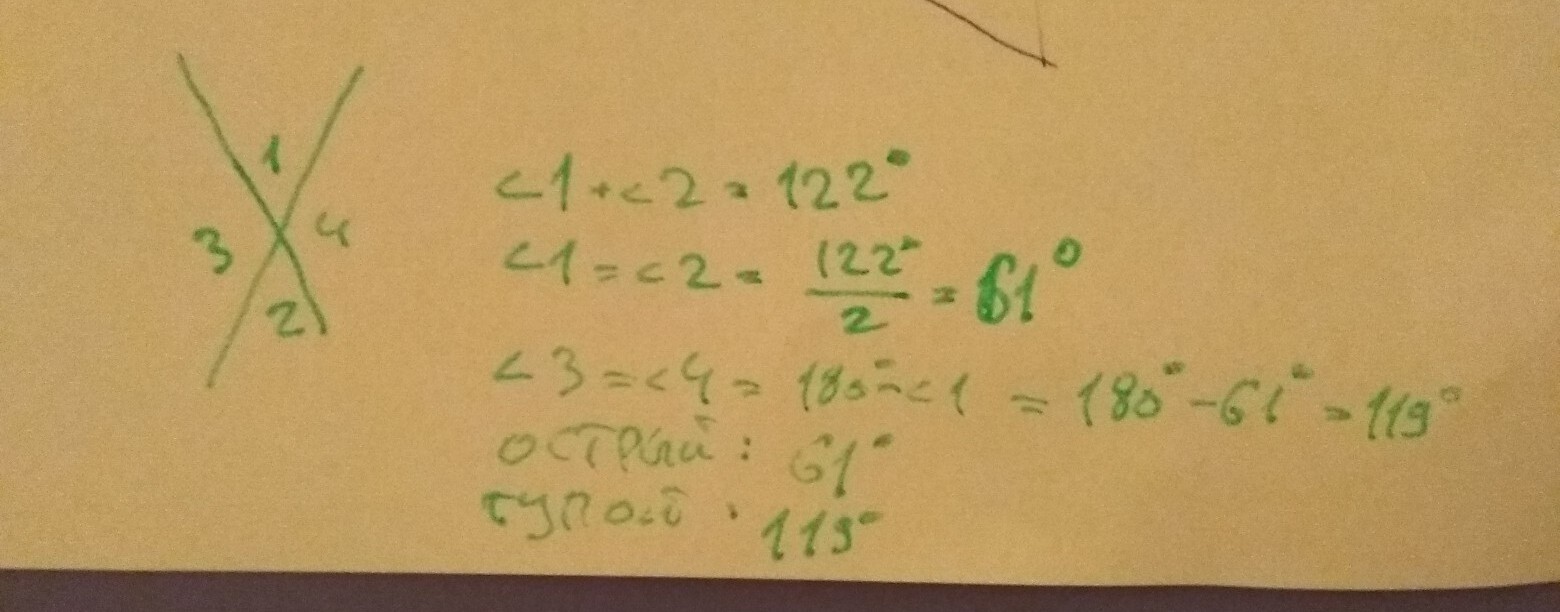 1
3 4
2
<1+<2=122°
<1=<2=122°/2=61°
<3=<4=180°-<1=180°-61°=119°
острый: 61°
тупой: 119°